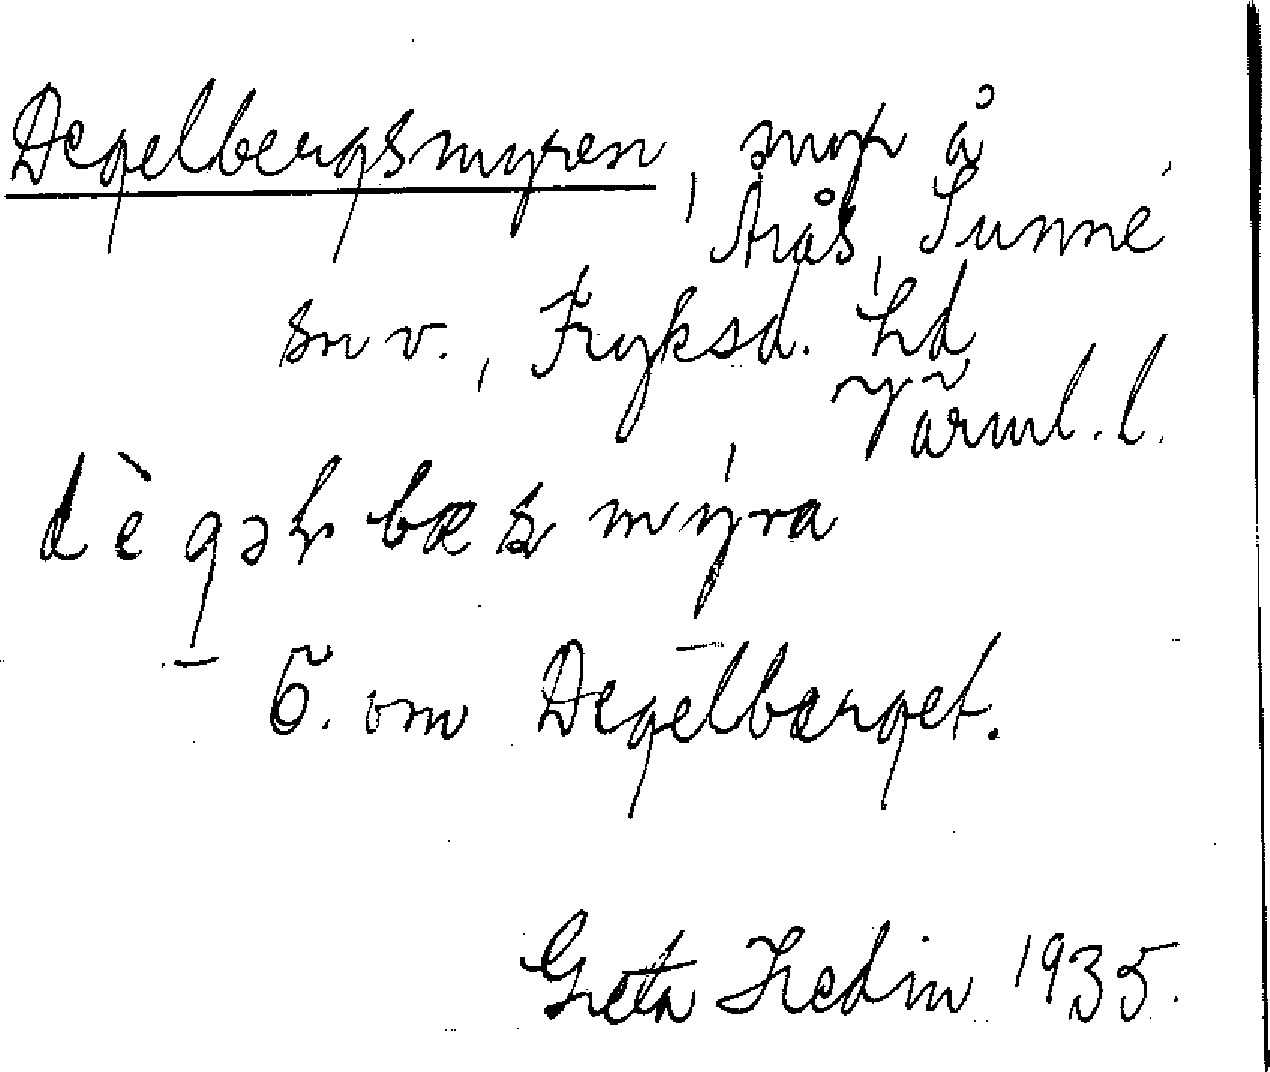 Degelbergsmyren, myr å
Årås, Sunne
sn v., Fryksd. hd
Värml. l.
dègəɫbæʂmýra
Ö. om Degelbärget.
Greta Hedin 1935.